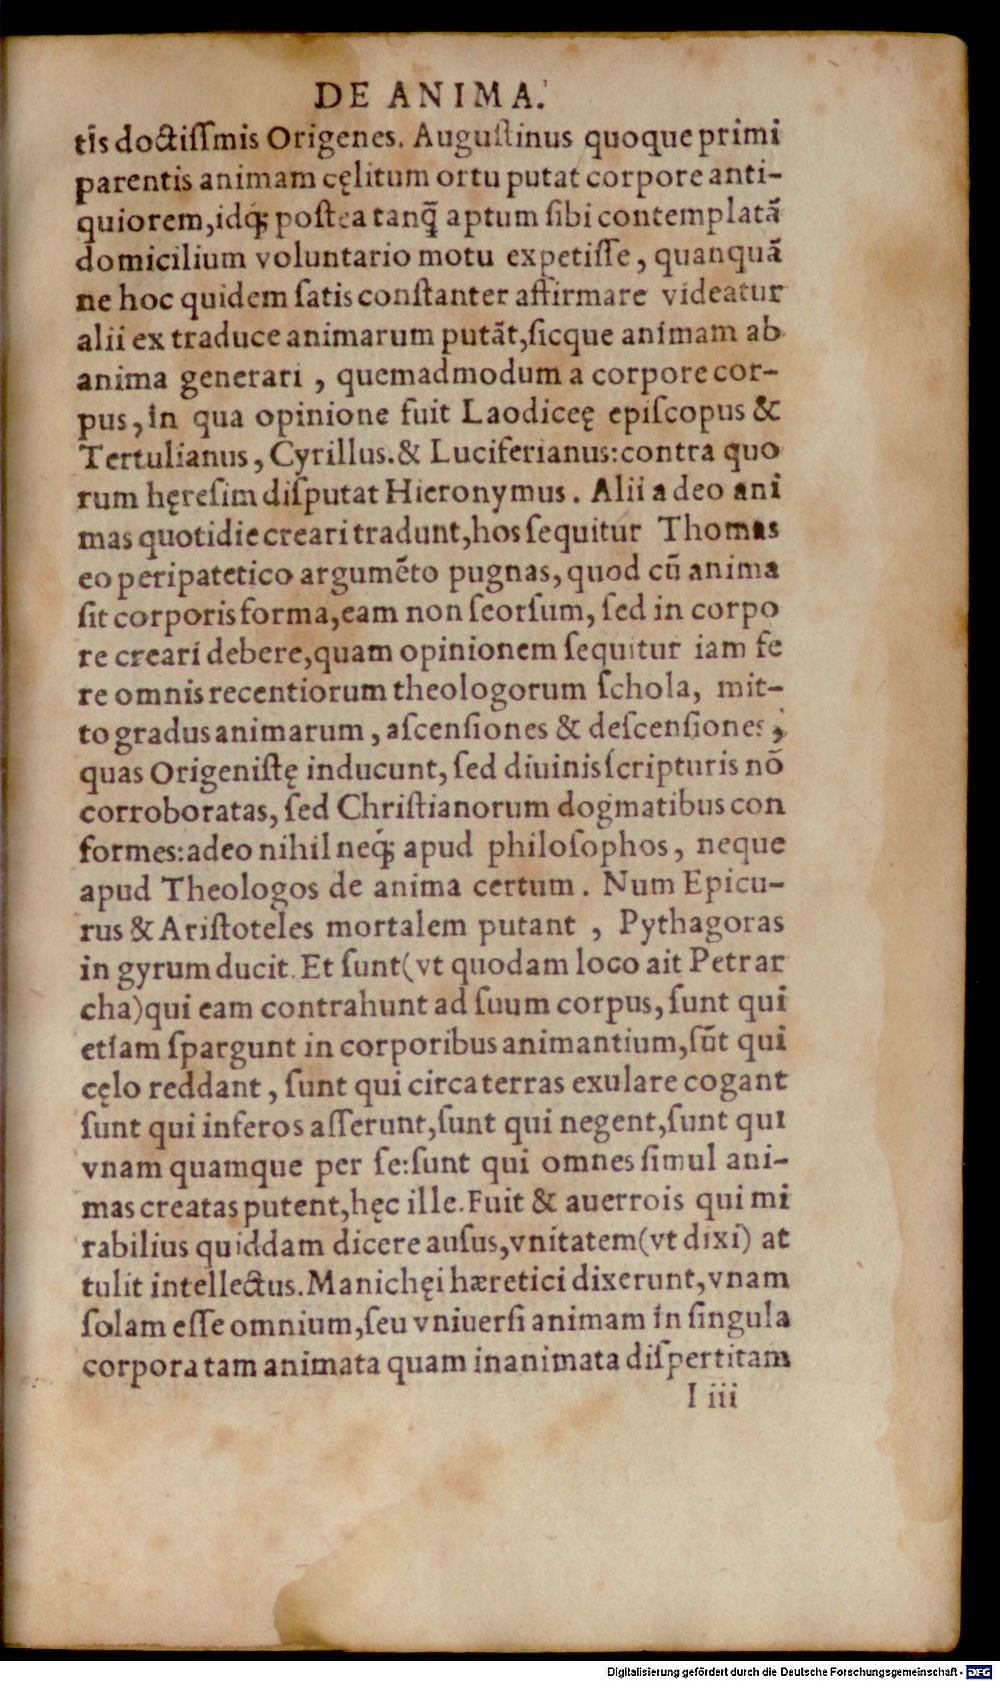 DE ANIMA.
tĩs doctiſſmis Origenes. Auguſtinus quoque primi
parentis animam cęlitum ortu putat corpore anti-
quiorem,idq́; poſtea tanq̃ aptum ſibi contemplatã
domicilium voluntario motu expetiſſe, quanquã
ne hoc quidem ſatis conſtanter affirmare videatur
alii ex traduce animarum putãt,ſicque animam ab
anima generari , quemadmodum a corpore cor-
pus, in qua opinione fuit Laodiceę epiſcopus &
Tertulianus, Cyrillus.& Luciferianus:contra quo
rum hęreſim diſputat Hieronymus. Alii a deo ani
mas quotidie creari tradunt,hos ſequitur Thomas
eo peripatetico argumẽto pugnas, quod cũ anima
ſit corporis forma,eam non ſeorſum, ſed in corpo
re creari debere,quam opinionem ſequitur iam fe
re omnis recentiorum theologorum ſchola, mit-
to gradus animarum, aſcenſiones & deſcenſiones,
quas Origeniſtę inducunt, ſed diuinis ſcripturis nõ
corroboratas, ſed Chriſtianorum dogmatibus con
formes:adeo nihil neq́; apud philoſophos, neque
apud Theologos de anima certum. Num Epicu-
rus & Ariſtoteles mortalem putant , Pythagoras
in gyrum ducit. Et ſunt(vt quodam loco ait Petrar
cha)qui eam contrahunt ad ſuum corpus, ſunt qui
etiam ſpargunt in corporibus animantium,ſũt qui
cęlo reddant, ſunt qui circa terras exulare cogant
ſunt qui inferos aſſerunt,ſunt qui negent,ſunt qui
vnam quamque per ſe:ſunt qui omnes ſimul ani-
mas creatas putent,hęc ille. Fuit & auerrois qui mi
rabilius quiddam dicere auſus,vnitatem(vt dixi) at
tulit intellectus. Manichęi hæretici dixerunt,vnam
ſolam eſſe omnium,ſeu vniuerſi animam in ſingula
corpora tam animata quam inanimata diſpertitam
I iii
Digitalisierung gefördert durch die Deutsche Forschungsgemeinschaft - DFG